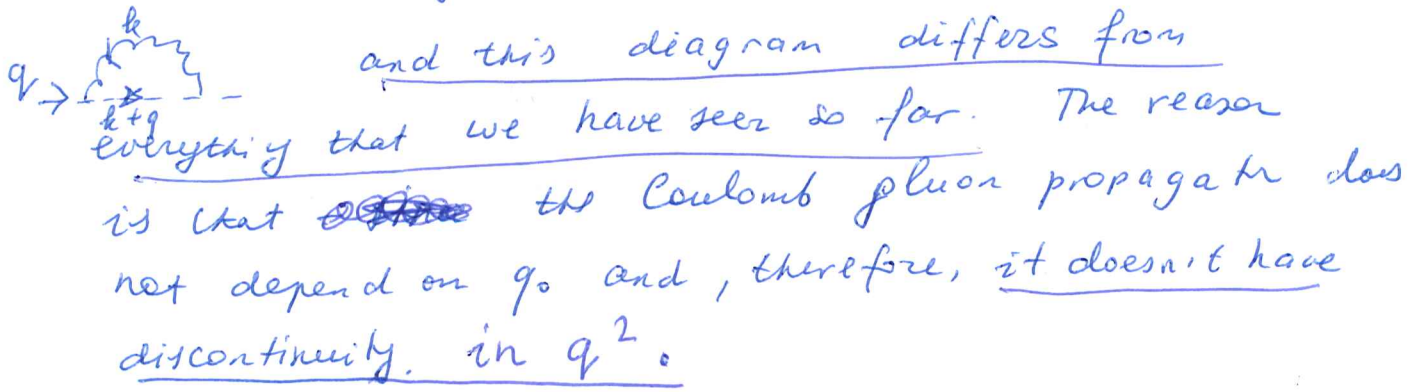 k
and this diagram differs from
q
k+q
everything that we have seen so far. The reason
is that the Coulomb gluon propagator does
not depend on q₀ and, therefore, it doesn't have
discontinuity. in q².